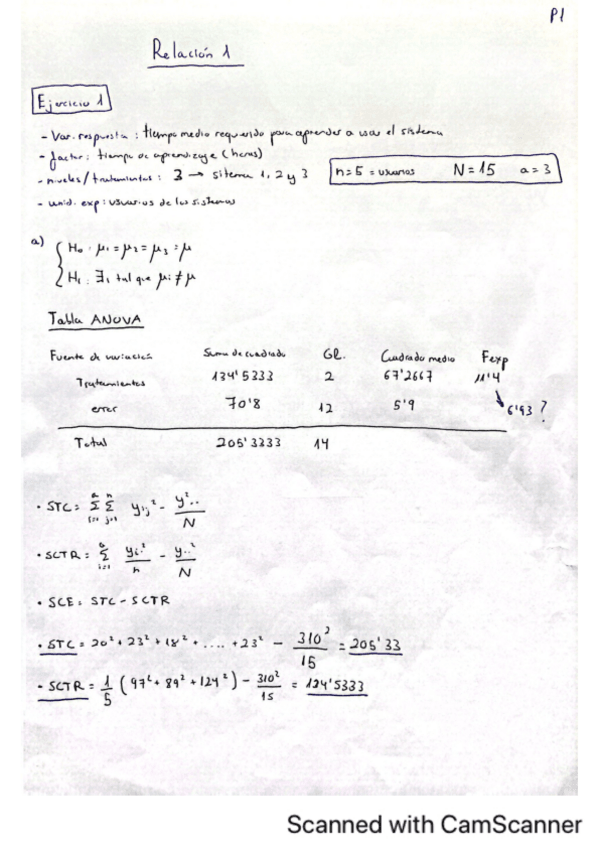 P1
Relación 1
Ejercicio 1
- Var. respuesta : tiempo medio requerido para aprender a usar el sistema
- factor : tiempo de aprendizaje (horas)
- niveles/tratamientos : 3 → sitema 1, 2 y 3
n=5 = usuarios N=15 a=3
- unid. exp : usuarios de los sistemas
a) { H₀ : μ₁ = μ₂ = μ₃ = μ
H₁ : ∃ᵢ tal que μᵢ ≠ μ
Tabla ANOVA
Fuente de variación Suma de cuadrado GL. Cuadrado medio Fexp
Tratamientos 134'5333 2 67'2667 11'4
error 70'8 12 5'9 ↘ 6'93 ?
Total 205'3333 14
• STC = Σᵢ₌₁ᵃ Σⱼ₌₁ⁿ yᵢⱼ² - y²../N
• SCTR = Σᵢ₌₁ᵃ yᵢ.²/n - y..²/N
• SCE = STC - SCTR
• STC = 20² + 23² + 18² + .... + 23² - 310²/15 = 205'33
• SCTR = 1/5 (97² + 89² + 124²) - 310²/15 = 134'5333
Scanned with CamScanner